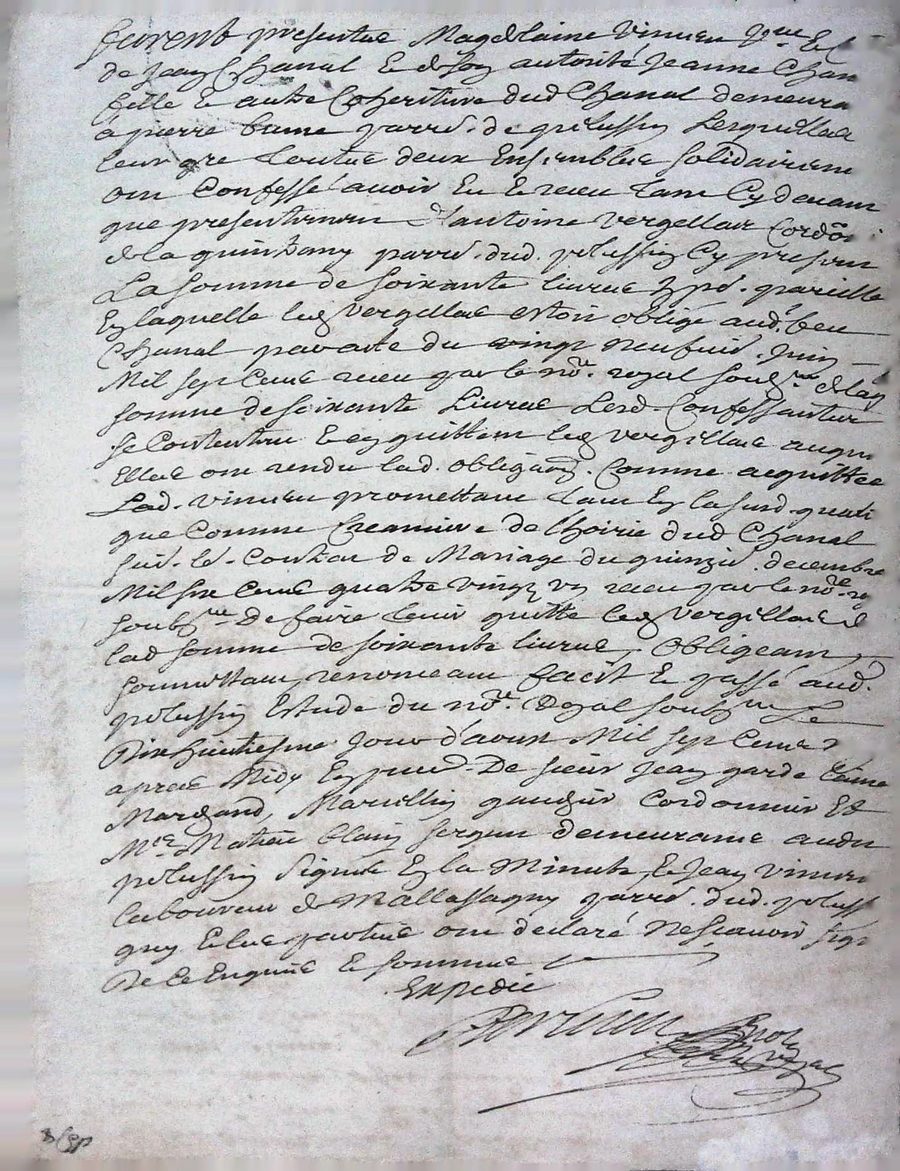 furent presentes Magdelaine Vincen
de Jean Chanal et de son autorité Jeanne Chan
fille et autre Coheritiere dud Chanal demeura
a pierre bame parre. de pelussin Lesquelles
leur gre toutes deux Ensembles solidairem
ont Confessé avoir Eu et receu tant Cy devant
que presentemen d'antoine vergellas Cordon
de la quintany parre. dud. pelussin Cy presen
La somme de soixante livres pareille
En laquelle led vergellas estoit obligé aud. feu
Chanal par acte du vingt neufvie. Juin
Mil sept Cens receu par le nore. royal soubne. de lad
somme de soixante Livres Lesd. Confessantes
se Contentent et en quittent led vergellas auquel
Elles ont rendu lad. obligaon. Comme acquittee
Lad. vincen promettant tant En la susd. quali
que Comme Creanciere de lhoirie dud Chanal
suiv. le Contrat de Mariage du quinzie. decembre
Mil six Cens quatre vingt un receu par le nore. ro
soubne. de faire tenir quitte led Vergellas de
lad somme de soixante livres, obligeant,
soumettant, renonceant faict et passé aud.
pelussin Estude du nore. Royal soubne Le
Dixhuitiesme Jour d'aoust Mil sept Cens
apres Midy En pnce. De sieur Jean garde
Marchand, Marcellin gaudier Cordonnier Et
Me. Matieu blain sergen demeurans audit
pelussin signés En la Minute, et Jean vincen
laboureur de Mallassagny parre. dud. peluss
quy et les parties ont declaré Ne scavoir sign
De Ce Enquis et sommes
Expedié